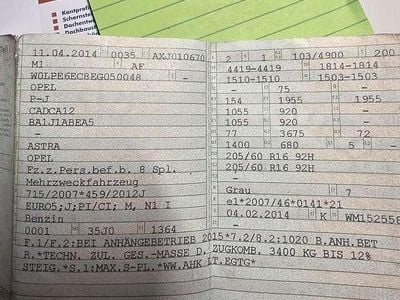 Kontrollie
Schornstei
Dachentwä
Dachbausto
11.04.2014 0035 AXJ010670
M1 AF
W0LPE6EC8EG050048 -
OPEL
P-J
CADCA12
BA1J1ABEA5
-
ASTRA
OPEL
Fz.z.Pers.bef.b. 8 Spl.
Mehrzweckfahrzeug
715/2007*459/2012J
EURO5;J;PI/CI; M, N1 I
Benzin
0001 35J0 1364
2 1 103/4900 200
4419-4419 1814-1814
1510-1510 1503-1503
- 75 -
154 1955 1955
1055 920
1055 920 -
77 3675 72
1400 680 5 -
205/60 R16 92H
205/60 R16 92H
-
Grau 7
e1*2007/46*0141*21
04.02.2014 K WM152558
F.1/F.2:BEI ANHÄNGEBETRIEB 2015*7.2/8.2:1020 B.ANH.BET
R.*TECHN. ZUL. GES.-MASSE D. ZUGKOMB. 3400 KG BIS 12%
STEIG.*S.1:MAX.S-PL.*WW.AHK LT.EGTG*